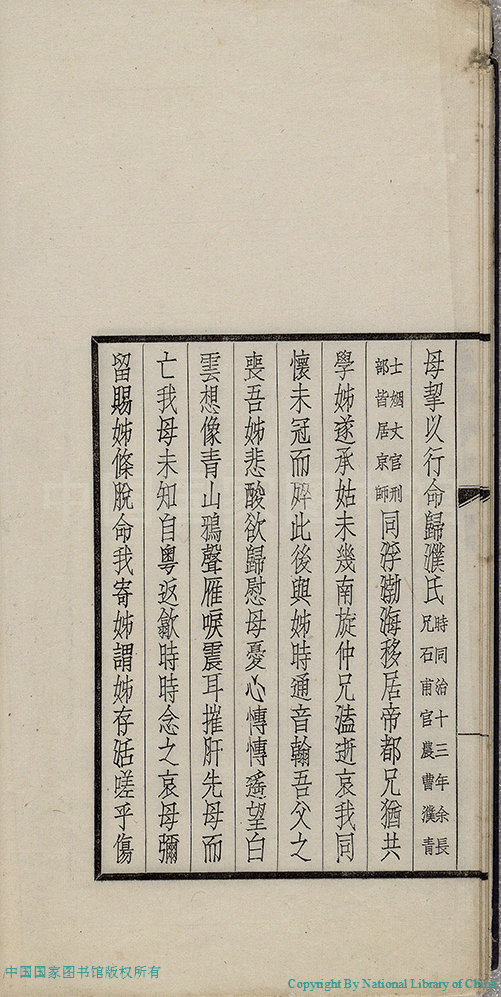 母挈以行命歸濮氏時同治十三年余長兄石甫官農曹濮青
士姻丈官刑部皆居京師同浮渤海移居帝都兄猶共
學姊遂承姑未幾南旋仲兄溘逝哀我同
懷未冠而辭此後與姊時通音翰吾父之
喪吾姊悲酸欲歸慰母憂心慱慱遙望白
雲想像青山鴉聲雁唳震耳摧肝先母而
亡我母未知自粵返歙時時念之哀母彌
留賜姊條脫命我寄姊謂姊存活嗟乎傷
中国国家图书馆版权所有
Copyright By National Library of China